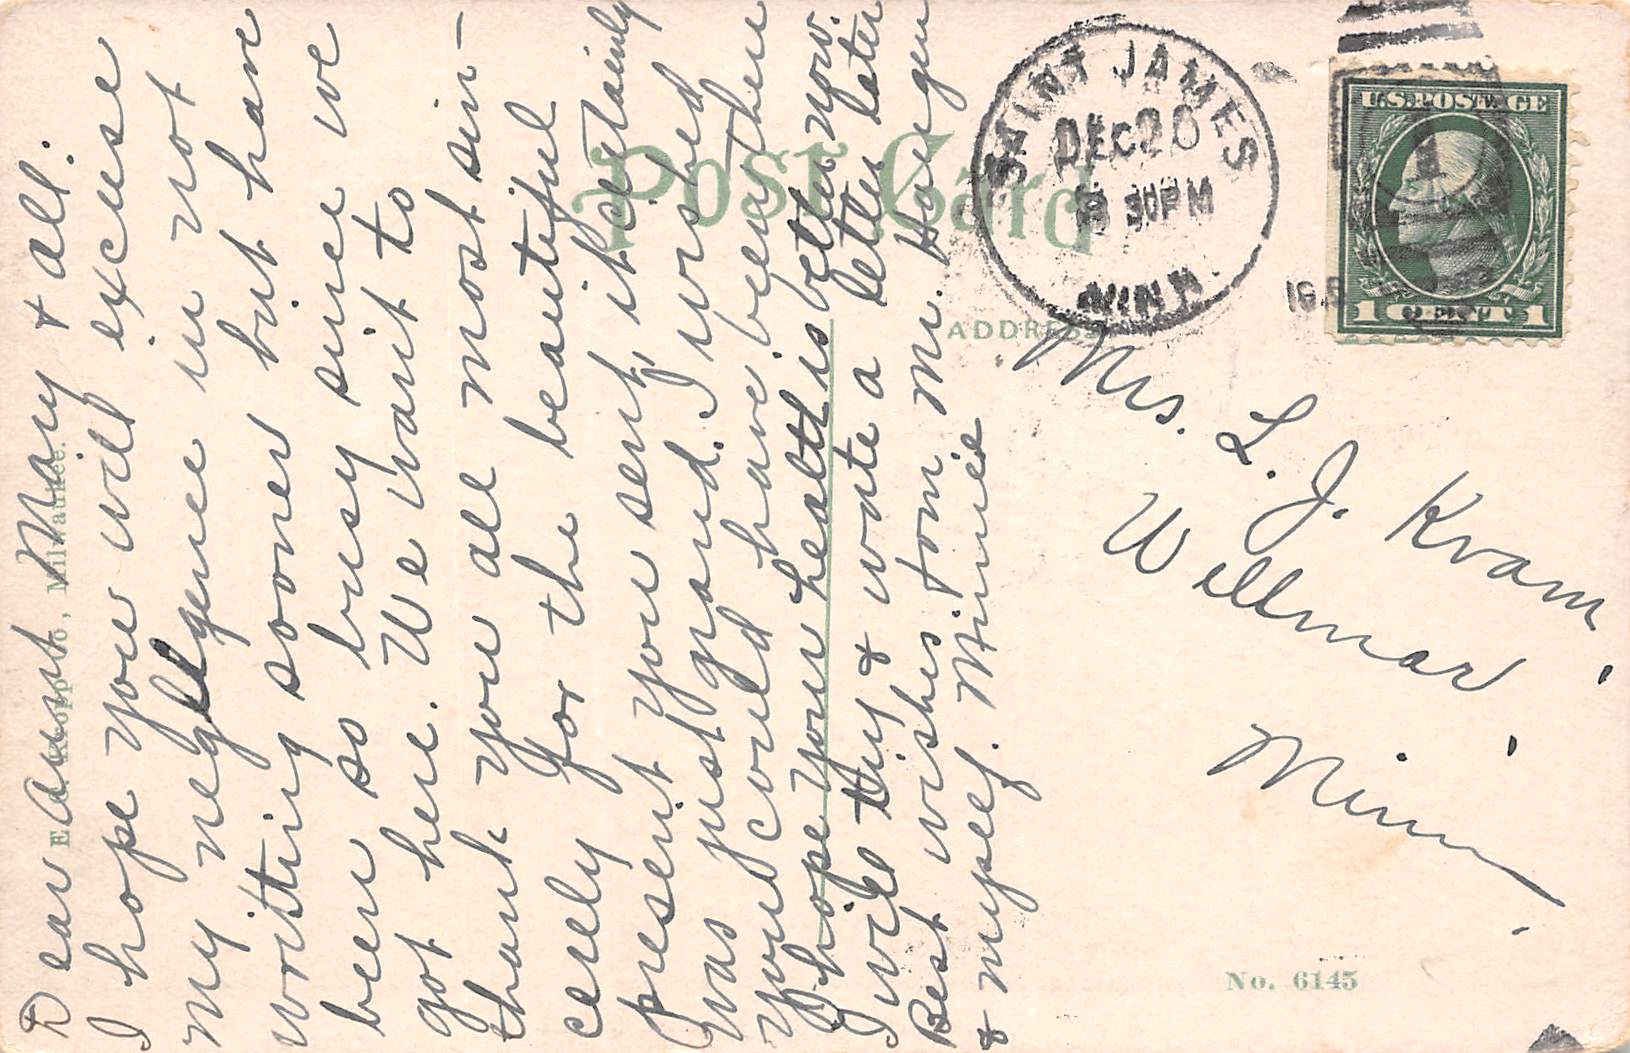 Dear Aunt Mary & all:
I hope you will excuse
my neglegence in not
writting sooner but have
been so busy since we
got here. We want to
thank you all most sin-
cerely for the beautiful
present you sent, it certainly
was just grand. I wished
you could have been here
I hope your health is better now.
I will try & write a letter later
Best wishes from Mr. Haugen
& myself. Minnie
Post Card
ADDRESS
SAINT JAMES
DEC 20
30 PM
MINN.
U.S. POSTAGE
1 CENT 1
Mrs. L. J. Kvam
Willmar
Minn.
No. 6145
Milwaukee.